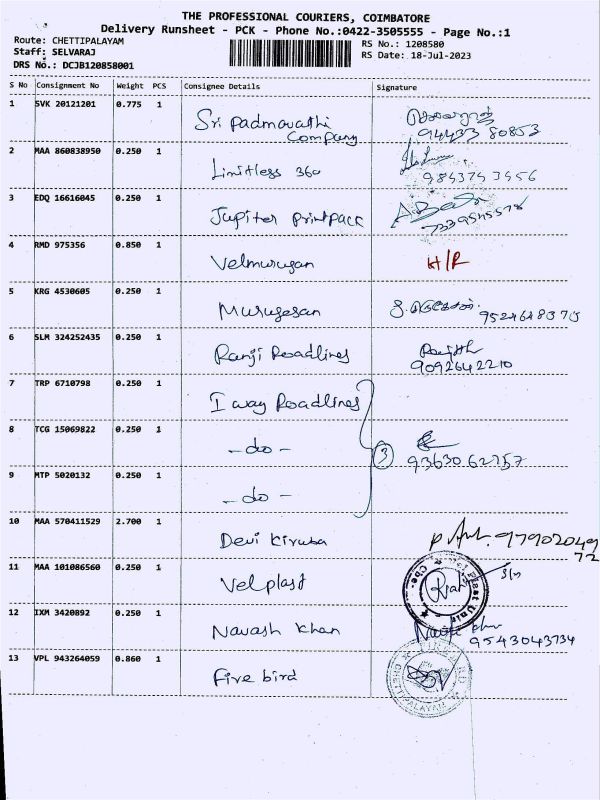 THE PROFESSIONAL COURIERS, COIMBATORE
Delivery Runsheet - PCK - Phone No.:0422-3505555 - Page No.:1
Route: CHETTIPALAYAM
Staff: SELVARAJ
DRS No.: DCJB120858001
RS No.: 1208580
RS Date: 18-Jul-2023
S No Consignment No Weight PCS Consignee Details Signature
1 SVK 20121201 0.775 1 Sri Padmavathi Company 94433 80853
2 MAA 860838950 0.250 1 Limitless 360 9843793456
3 EDQ 16616045 0.250 1 Jupiter Printpack
4 RMD 975356 0.850 1 Velmurugan H/R
5 KRG 4530605 0.250 1 Murugesan
6 SLM 324252435 0.250 1 Ranji Roadlines 9092642210
7 TRP 6710798 0.250 1 I way Roadlines
8 TCG 15069822 0.250 1 -do- 3 93630 62757
9 MTP 5020132 0.250 1 -do-
10 MAA 570411529 2.700 1 Devi Kiruba 9790204972
11 MAA 101086560 0.250 1 Velplast
12 IXM 3420892 0.250 1 Navash Khan 9543043734
13 VPL 943264059 0.860 1 Fire bird
CHETTIPALAYAM